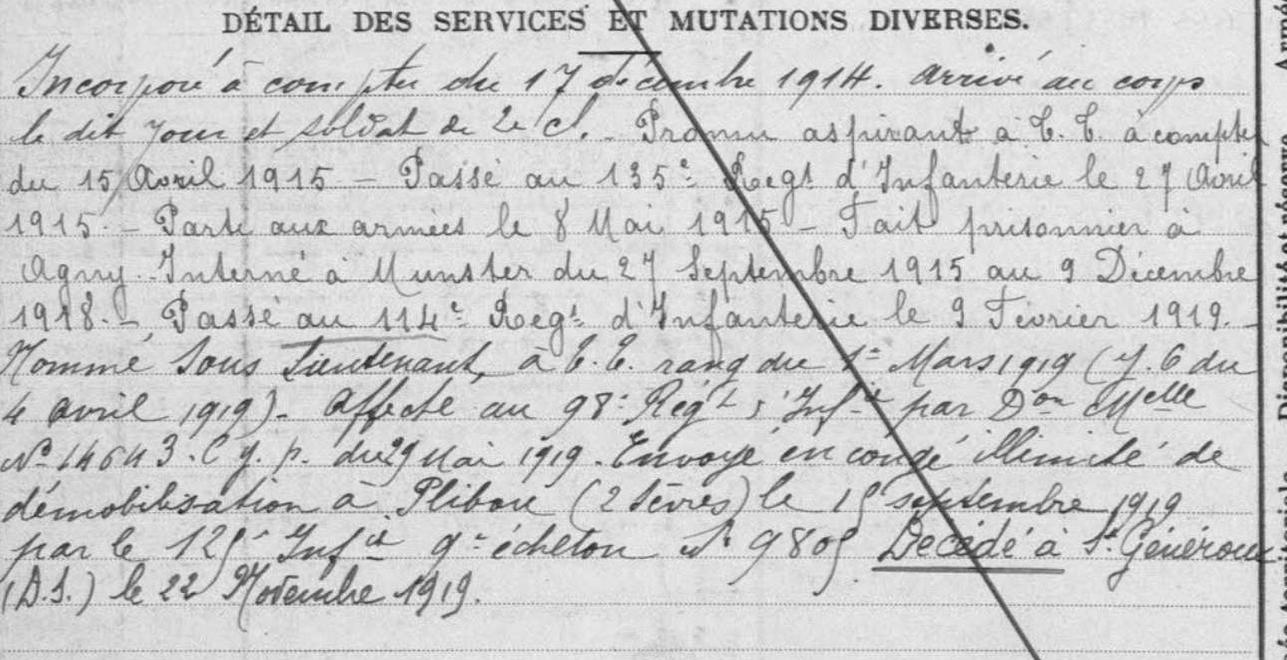 DÉTAIL DES SERVICES ET MUTATIONS DIVERSES.
Incorporé à compter du 17 décembre 1914. arrivé au corps
le dit jour et soldat de 2e cl. - Promu aspirant à T. T. à compter
du 15 Avril 1915 - Passé au 135e Regt d'Infanterie le 27 Avril
1915. - Parti aux armées le 8 Mai 1915 - Fait prisonnier à
Agny. Interné à Munster du 27 Septembre 1915 au 9 Décembre
1918. - Passé au 114e Regt d'Infanterie le 9 Février 1919. -
Nommé Sous Lieutenant, à T. T. rang du 1er Mars 1919 (J. O du
4 avril 1919). Affecté au 98e Régt d'Infie par Don Melle
No 14643. C. y. p. du 29 Mai 1919. Envoyé en congé illimité de
démobilisation à Pliboux (2 Sèvres) le 15 septembre 1919
par le 125e Infie 9e échelon No 9805 Décédé à St Généroux
(D.S.) le 22 Novembre 1919.